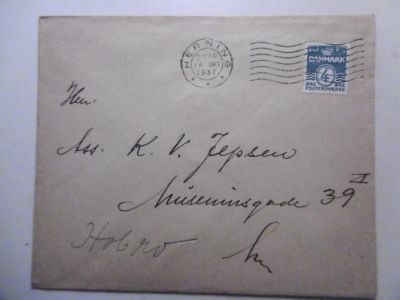 HERNING
1937
DANMARK
4
ØRE ØRE
POSTFRIMÆRKE
Herr.
Ass. K. V. Jepsen
Museumsgade 39 I
Hobro